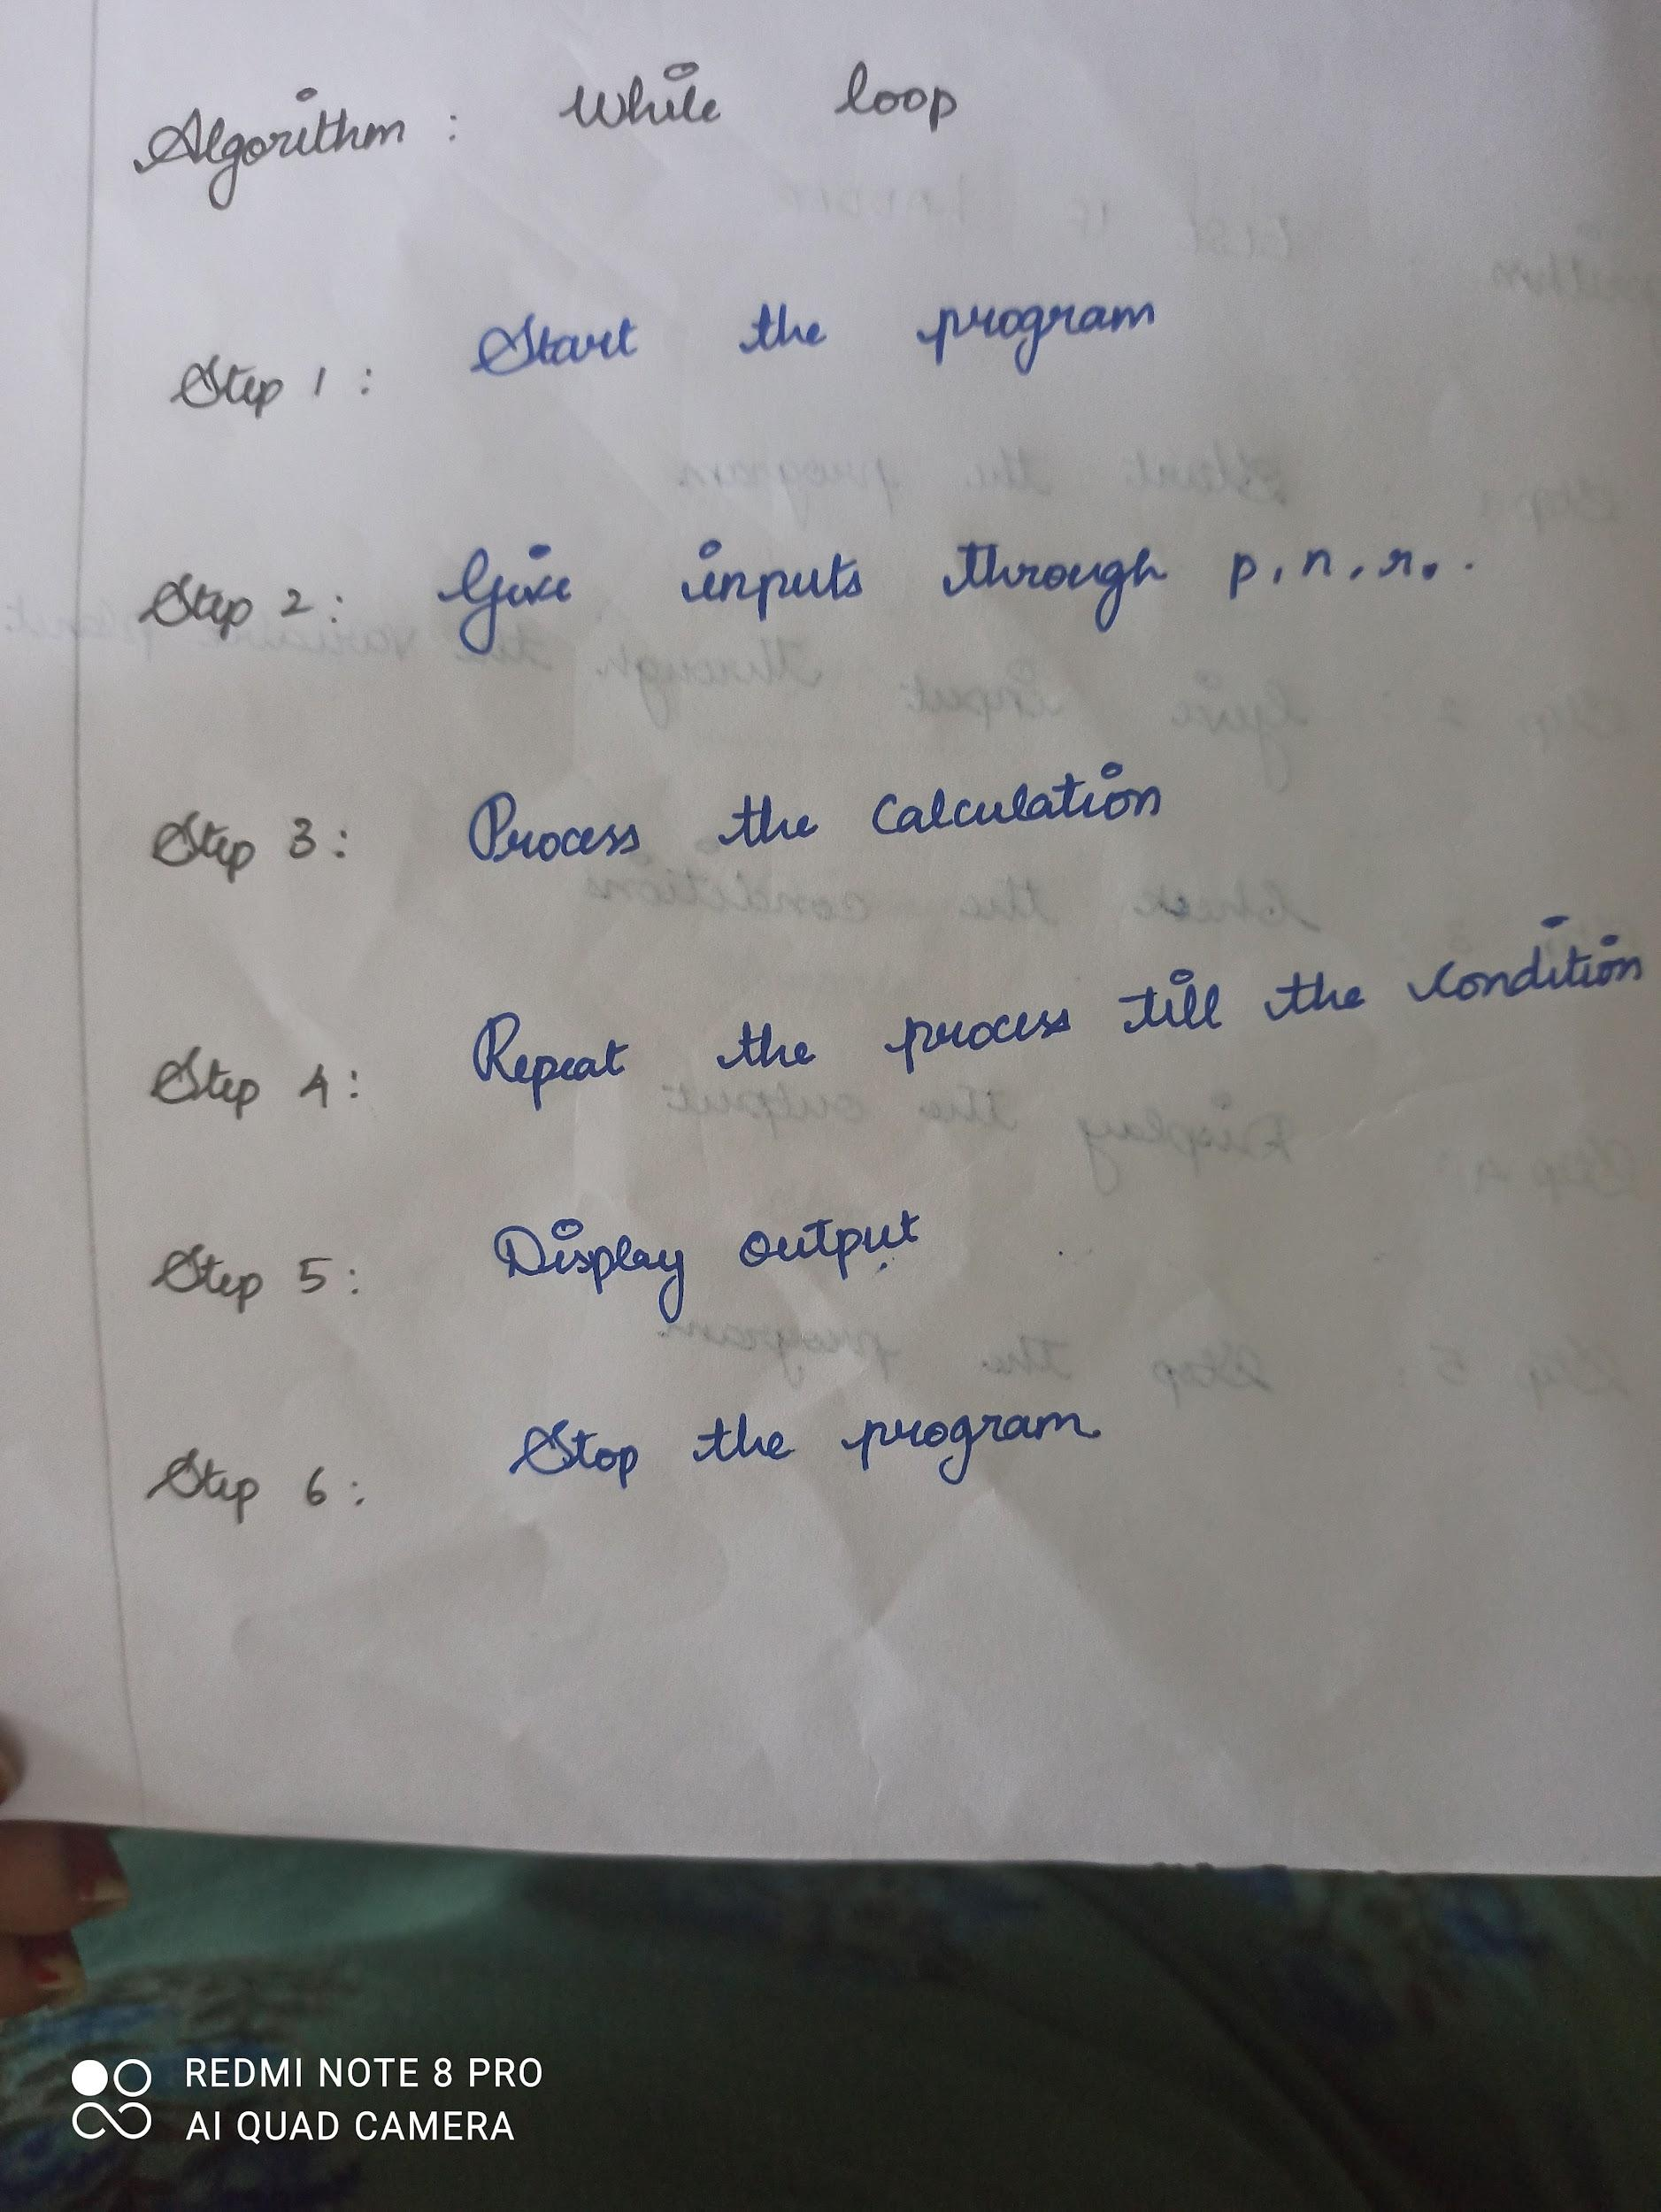 Algorithm : While loop
Step 1 : Start the program
Step 2 : Give inputs through p, n, r. .
Step 3 : Process the Calculation
Step 4 : Repeat the process till the condition
Step 5 : Display output
Step 6 : Stop the program
REDMI NOTE 8 PRO
AI QUAD CAMERA